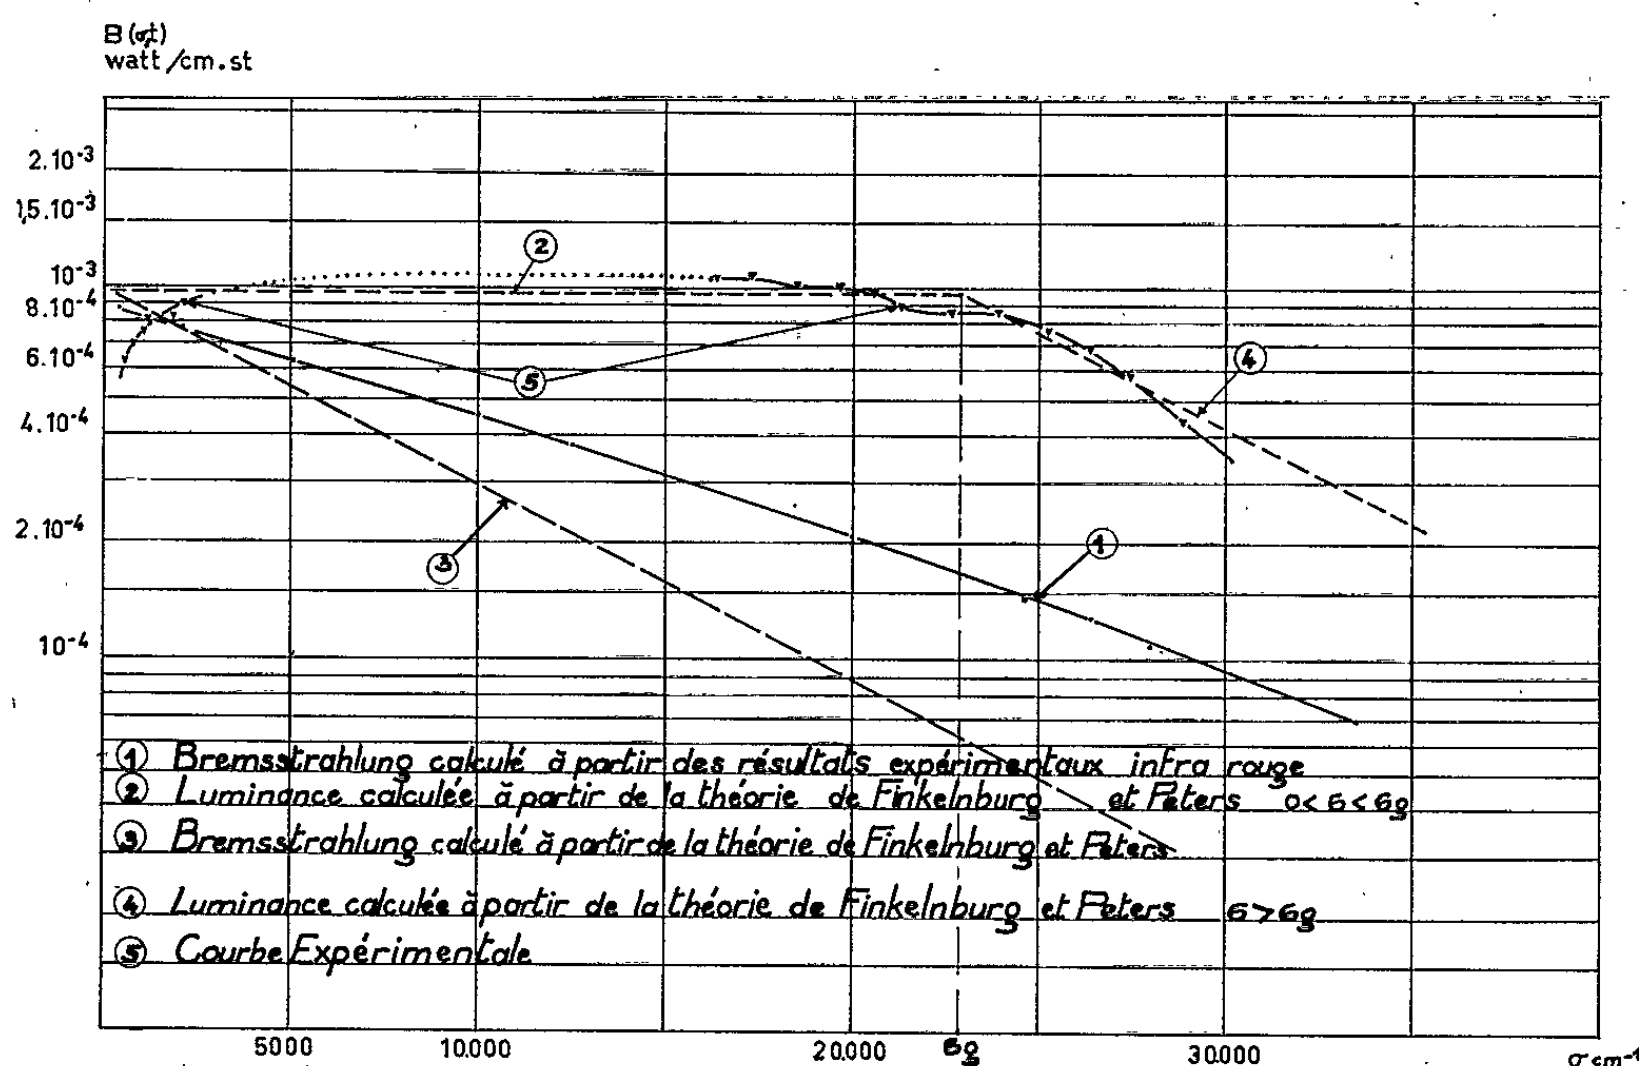 B(σ,t)
watt/cm.st
2.10⁻³
1,5.10⁻³
10⁻³
8.10⁻⁴
6.10⁻⁴
4.10⁻⁴
2.10⁻⁴
10⁻⁴
②
⑤
④
③
①
① Bremsstrahlung calculé à partir des résultats expérimentaux infra rouge
② Luminance calculée à partir de la théorie de Finkelnburg et Peters 0<σ<σg
③ Bremsstrahlung calculé à partir de la théorie de Finkelnburg et Peters
④ Luminance calculée à partir de la théorie de Finkelnburg et Peters σ>σg
⑤ Courbe Expérimentale
5000 10.000 20.000 σg 30.000 σ cm⁻¹